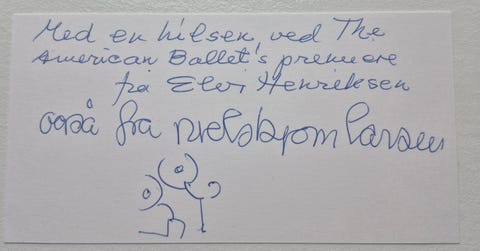 Med en hilsen ved The
American Ballet's premiere
fra Elvi Henriksen
også fra nielsbjørnlarsen